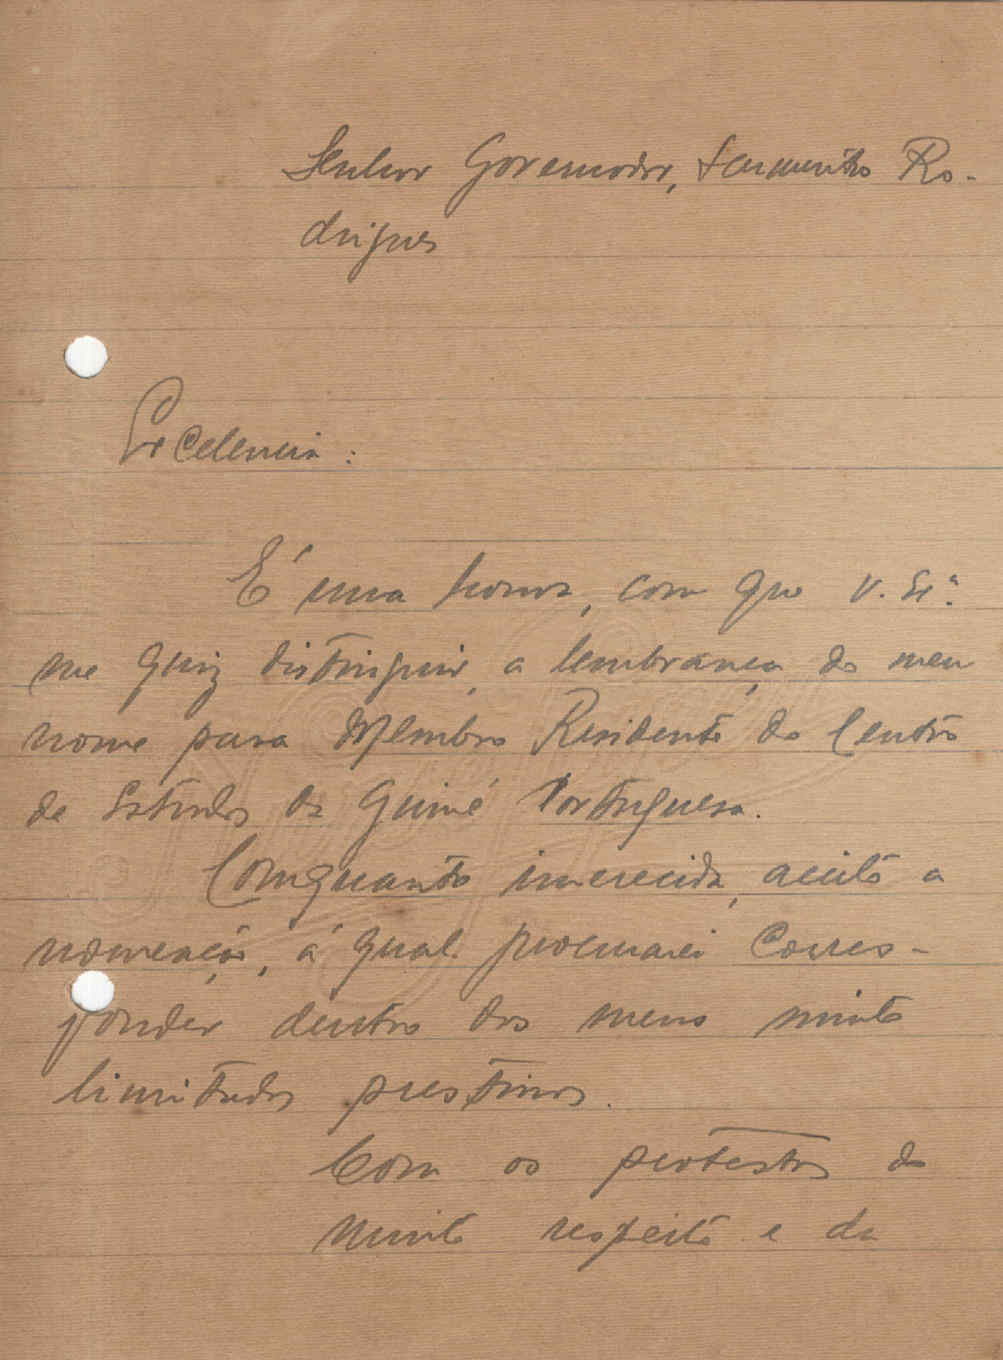 Senhor Governador, Sarmento Ro-
drigues
Excelencia:
É uma honra, com que V. Exª.
me quiz distinguir, a lembrança do meu
nome para Membro Residente do Centro
de Estudos da Guiné Portuguesa.
Comquanto imerecida, aceito a
nomeação, á qual procurarei corres-
ponder dentro dos meus muito
limitados prestimos.
Com os protestos do
muito respeito e da